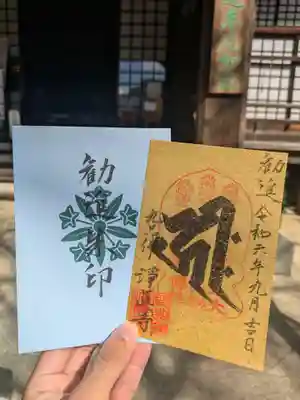 勧進印
勧進 令和六年九月吉日
九品佛 淨眞寺